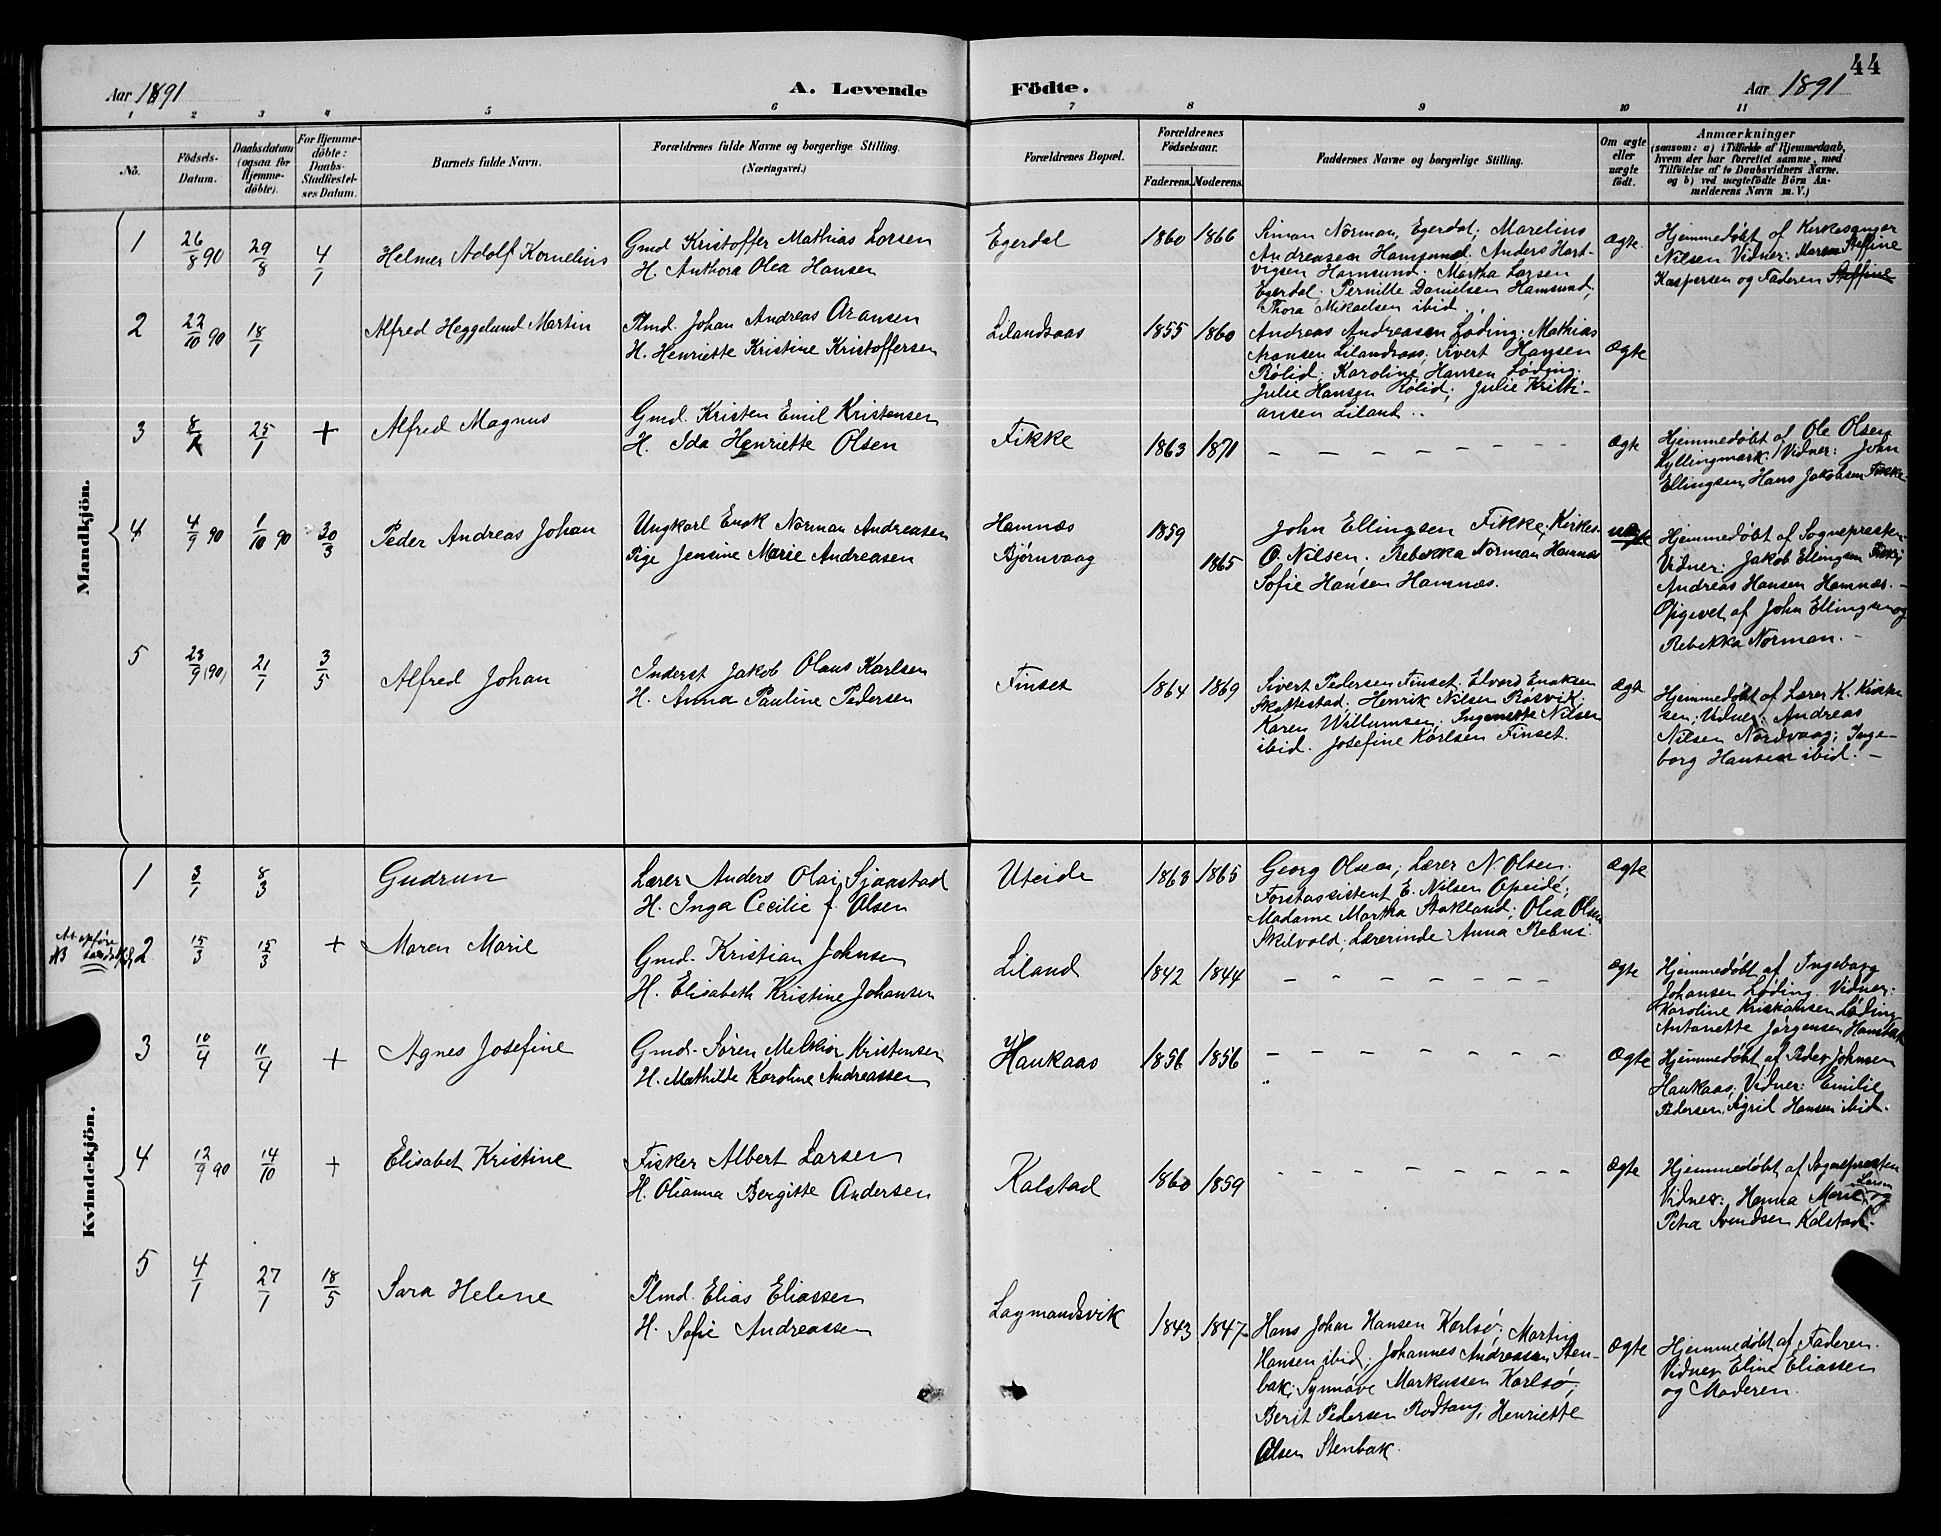 44
Aar 1891
A. Levende
Födte.
Aar 1891
1 2 3 4 5 6 7 8 9 10 11
No.
Födsels-
Datum.
Daabsdatum
(ogsaa for
Hjemme-
döbte).
For Hjemme-
döbte:
Daabs-
Stadfæstel-
ses Datum.
Barnets fulde Navn.
Forældrenes fulde Navne og borgerlige Stilling.
(Næringsvei.)
Forældrenes Bopæl.
Forældrenes
Födselsaar.
Faderens. Moderens.
Faddernes Navne og borgerlige Stilling.
Om ægte
eller
uægte
födt.
Anmærkninger
(saasom: a) i Tilfælde af Hjemmedaab,
hvem der har forrettet samme, med
Tilföielse af to Daabsvidners Navne.
og b) ved uægtefödte Börn An-
melderens Navn m. V.)
Mandkjön.
1 26/8 90 29/8 4/1 Helmer Adolf Kornelius
Gmd Kristoffer Mathias Larsen
H. Anthora Olea Hansen
Egerdal 1860 1866
Simon Norman, Egerdal; Marelius
Andreasen Hamsund. Anders Hart-
vigsen Hamsund. Martha Larsen
Egerdal. Pernille Danielsen Hamsund,
Thora Mikaelsen ibid.
ægte.
Hjemmedøbt af Kirkesanger
Nilsen Vidner: Maren Steffine
Kaspersen og Faderen Steffine
2 22/10 90 18/1 Alfred Heggelund Martin
Plmd. Johan Andreas Aransen
H. Henriette Kristine Kristoffersen
Lilandsaas 1855 1860
Andreas Andreasen Løding; Mathias
Aransen Lilandsaas; Sivert Hansen
Rølid; Karoline Hansen Løding;
Julie Hansen Rølid; Julie Kristi-
ansen Liland..
Ægte
3 8/1 25/1 + Alfred Magnus
Gmd. Kristen Emil Kristensen
H. Ida Henriette Olsen
Fikke 1863 1871
– – – – – – –
Ægte
Hjemmedøbt af Ole Olsen
Kyllingmark. Vidner: John
Ellingsen, Hans Jakobsen Fikke
4 4/9 90 1/10 90 30/3 Peder Andreas Johan
Ungkarl Enok Norman Andreasen
Pige Jensine Marie Andreasen
Hamnæs
Bjørnvaag
1859
1865
John Ellingsen Fikke; Kirkes.
O. Nilsen. Rebekka Norman Hamnæs
Sofie Hansen Hamnæs.
uægte
Hjemmedøbt af Sognepresten
Vidner: Jakob Ellingsen Fikke;
Andreas Hansen Hamnæs. –
Opgivet af John Ellingsen og
Rebekka Norman. –
5 23/9 (90) 21/1 3/5 Alfred Johan
Inderst Jakob Olaus Karlsen
H. Anna Pauline Pedersen
Finset 1864 1869
Sivert Pedersen Finset. Edvard Enoksen
Skottestad; Henrik Nilsen Røsvik;
Karen Willumsen. Ingemette Nilsen
ibid. Josefine Karlsen Finset.
Ægte
Hjemmedøbt af Lærer K. Kristen
sen; Vidner: Andreas
Nilsen Nordvaag; Inge-
borg Hansen ibid. –
Kvindekjön.
1 3/1 8/3 Gudrun
Lærer Anders Olai Sjaastad
H. Inga Cecilie f. Olsen
Uteide 1863 1865
Georg Olsen; Lærer N. Olsen;
Forstassistent E. Nilsen Opeide;
Madame Martha Stokland; Olea Olsen
Skilvold; Lærerinde Anna Rebni.
Ægte
NB
2 15/3 15/3 + Maren Marie
Gmd. Kristian Johnsen
H. Elisabeth Kristine Johansen
Liland 1842 1844
– – – – – – –
Ægte
Hjemmedøbt af Ingeborg
Johansen Løding. Vidner:
Karoline Kristiansen Løding
Antonette Jørgensen
3 10/4 11/4 + Agnes Josefine
Gmd. Søren Melkior Kristensen
H. Mathilde Karoline Andreassen
Haukaas 1856 1856
– – – – – – –
Ægte
Hjemmedøbt af Peder Johnsen
Haukaas; Vidner: Emilie
Pedersen, Sigrid Hansen ibid.
4 12/9 90 14/10 + Elisabet Kristine
Fisker Albert Larsen
H. Olianna Bergitte Andersen
Kalstad 1860 1859
– – – – – – – –
Ægte
Hjemmedøbt af Sognepresten
Vidner: Hanna Marie Larsen og
Petra Svendsen Kalstad.
5 4/1 27/1 18/5 Sara Helene
Plmd. Elias Eliassen
H. Sofie Andreassen
Lagmandsvik 1843 1847
Hans Johan Hansen Karlsø; Martin
Hansen ibid; Johannes Andreasen Sten-
bak; Synnøve Markussen Karlsø;
Berit Pedersen Rodtang; Henriette
Olsen Stenbak.
Ægte
Hjemmedøbt af Faderen.
Vidner Eline Eliassen
og Moderen.